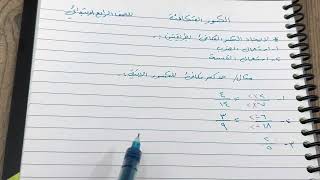 الكسور المتكافئة للصف الرابع ابتدائي
* لايجاد الكسر المكافئ طريقتين
١- استعمال الضرب
٢- استعمال القسمة
مثال/ كسر مكافئ للكسور الاتية :
١- ٢×٢ / ٢×٧ = ٤ / ١٤
٢- ٦÷٢ / ١٨÷٢ = ٣ / ٩
٣- ٢ / ٥